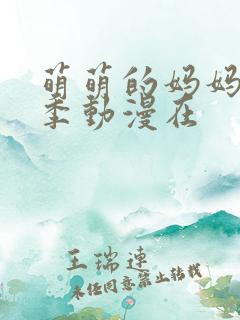 萌萌的妈妈
季動漫在
王瑞連
未经同意禁止转载